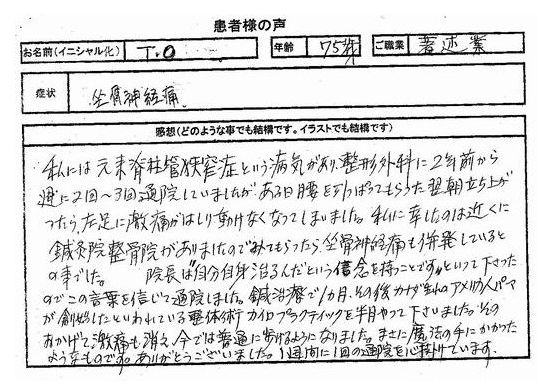 患者様の声
お名前(イニシャル化) T.O 年齢 75才 ご職業 著述業
症状 坐骨神経痛
感想(どのような事でも結構です。イラストでも結構です)
私には元来脊柱管狭窄症という病気があり、整形外科に2年前から
週に2回〜3回通院していましたがある日腰を引っぱってもらった翌朝立ち上が
ったら、左足に激痛がはしり動けなくなってしまいました。私に幸したのは近くに
鍼灸院整骨院がありましたのでみてもらったら、坐骨神経痛も併発していると
の事でした。 院長は"自分自身治るんだという信念を持つことです"といって下さった
のでこの言葉を信じて通院しました。鍼治療で1か月、その後カナダ生れのアメリカ人パーマー
が創始したといわれている整体術カイロプラクティックを半月やって下さいました。その
おかげで激痛も消え、今では普通に歩けるようになりました。まさに魔法の手にかかった
ようなものです。ありがとうございました。1週間に1回の通院を心掛けています。